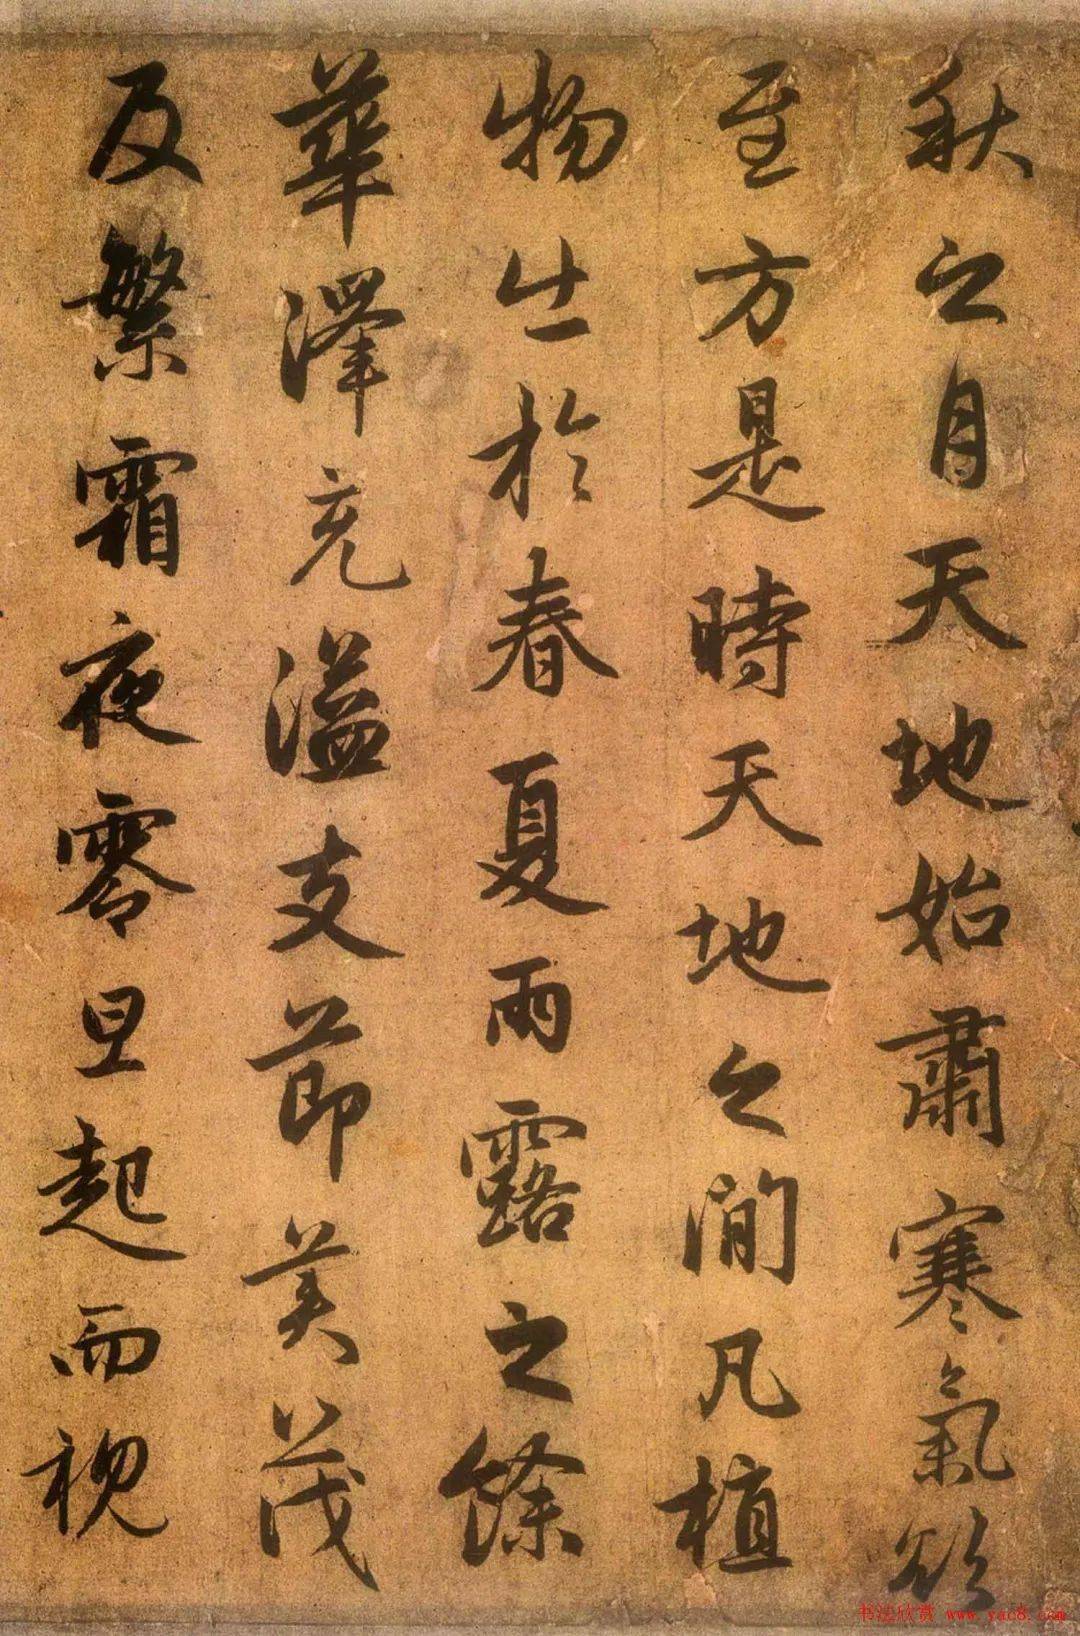 秋之月天地始肅寒氣欲
至方是時天地之間凡植
物出於春夏雨露之餘
華澤充溢支節美茂
及繁霜夜零旦起而視
书法欣赏 www.yac8.com